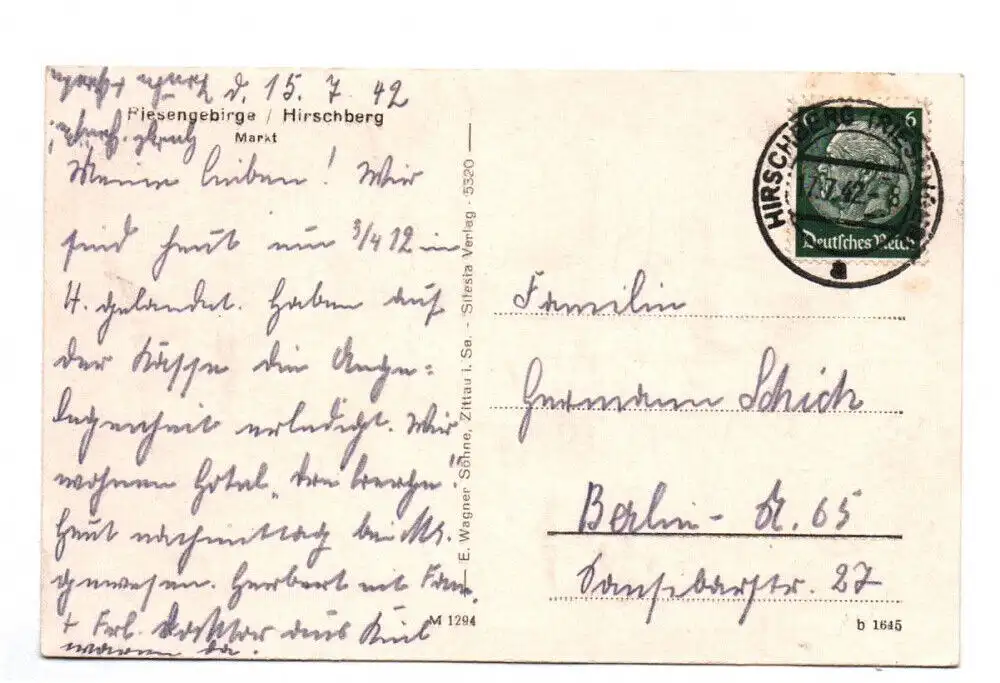 d. 15. 7. 42
Riesengebirge / Hirschberg
Markt
Meine Lieben! Wir
sind heut um 3/4 12 in
H. gelandet. Haben auf
der Kasse die Ange=
legenheit erledigt. Wir
wohnen Hotel „Drei Berge“!
Heut nachmittag bei
gewesen. Herbert mit
+ Frl. aus Kiel
waren da.
E. Wagner Söhne, Zittau i. Sa. - Silesia Verlag - 5320
M 1294
HIRSCHBERG (RIESENGEB)
17.7.42 - 8
a
6
Deutsches Reich
Familie
Hermann Schich
Berlin - N. 65
Sansibarstr. 27
b 1645